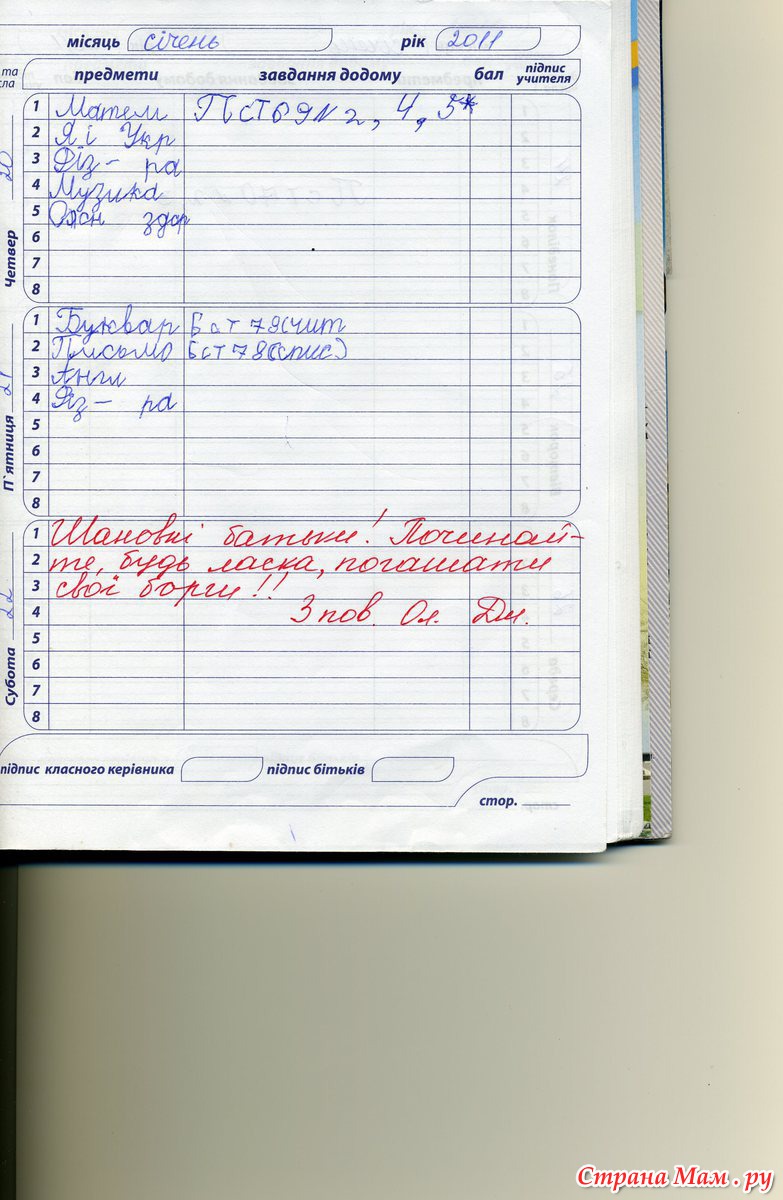 місяць січень рік 2011
та
сла
предмети завдання додому бал підпис учителя
Четвер 20
1 Матем ПСТ69N 2, 4, 5*
2 Я і Укр
3 Фіз- ра
4 Музика
5 Осн здор
6
7
8
П`ятниця 21
1 Буквар Б ст 79(чит
2 Письмо Б ст 78(спис)
3 Англ
4 Фіз- ра
5
6
7
8
Субота 22
1 Шановні батьки! Починай-
2 те, будь ласка, погашати
3 свої борги!!
4 З пов. Ол. Дм.
5
6
7
8
підпис класного керівника підпис бітьків
стор.
Страна Мам.ру